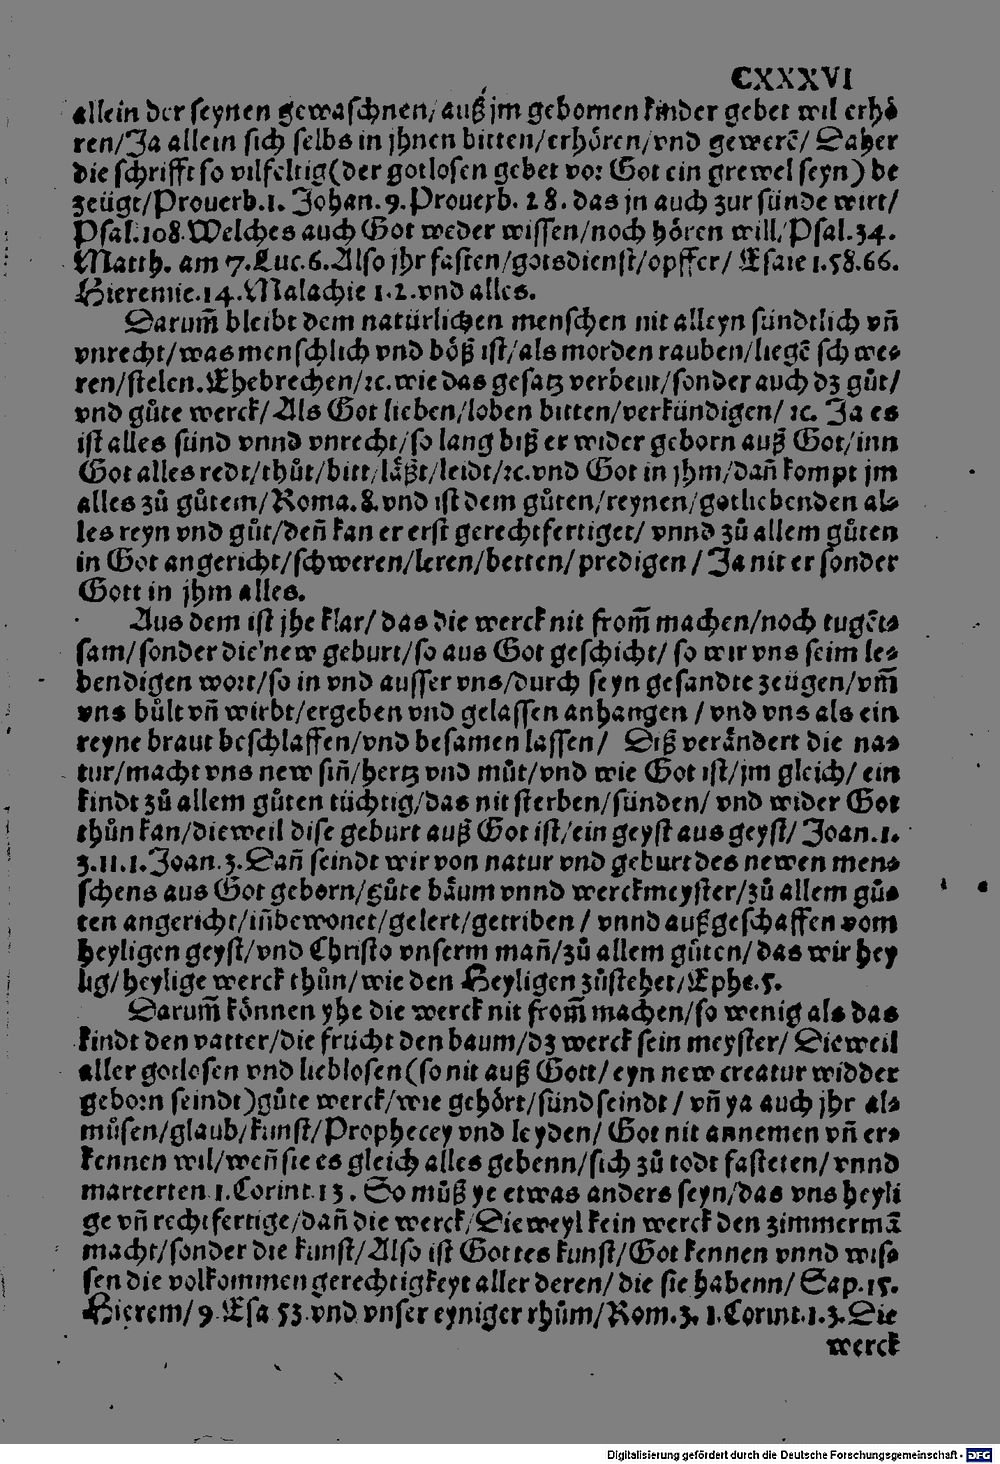 CXXXVI
allein der seynen gewaschnen/ auß jm gebornen kinder gebet wil erhö
ren/ Ja allein sich selbs in jhnen bitten/ erhören/ vnd gewerẽ/ Daher
die schrifft so vilfeltig (der gotlosen gebet vor Got ein grewel seyn) be
zeügt/ Prouerb. 1. Johan. 9. Prouerb. 28. das jn auch zur sünde wirt/
Psal. 108. Welches auch Got weder wissen/ noch hören will/ Psal. 34.
Matth. am 7. Luc. 6. Also jhr fasten/ gotsdienst/ opffer/ Esaie 1. 58. 66.
Hieremie. 14. Malachie 1. 2. vnd alles.
Darum̃ bleibt dem natürlichen menschen nit alleyn sündtlich vñ
vnrecht/ was menschlich vnd böß ist/ als morden rauben/ liegẽ schwe-
ren/ stelen. Ehebrechen/ ⁊c. wie das gesatz verbeut/ sonder auch dz gůt/
vnd gůte werck/ Als Got lieben/ loben bitten/ verkündigen/ ⁊c. Ja es
ist alles sünd vnnd vnrecht/ so lang biß er wider geborn auß Got/ inn
Got alles redt/ thůt/ bitt/ läßt/ leidt/ ⁊c. vnd Got in jhm/ dañ kompt jm
alles zů gůtem/ Roma. 8. vnd ist dem gůten/ reynen/ gotliebenden al-
les reyn vnd gůt/ deñ kan er erst gerechtfertiget/ vnnd zů allem gůten
in Got angericht/ schweren/ leren/ betten/ predigen/ Ja nit er sonder
Gott in jhm alles.
Aus dem ist jhe klar/ das die werck nit from̃ machen/ noch tugẽt-
sam/ sonder die new geburt/ so aus Got geschicht/ so wir vns seim le-
bendigen wort/ so in vnd ausser vns/ durch seyn gesandte zeügen/ vm̃
vns bůlt vñ wirbt/ ergeben vnd gelassen anhangen/ vnd vns als ein
reyne braut beschlaffen/ vnd besamen lassen/ Diß verändert die na-
tur/ macht vns new siñ/ hertz vnd můt/ vnd wie Got ist/ jm gleich/ ein
kindt zů allem gůten tüchtig/ das nit sterben/ sünden/ vnd wider Got
thůn kan/ dieweil dise geburt auß Got ist/ ein geyst aus geyst/ Joan. 1.
3. 11. 1. Joan. 3. Dañ seindt wir von natur vnd geburt des newen men-
schens aus Got geborn/ gůte bäum vnnd werckmeyster/ zů allem gů-
ten angericht/ iñbewonet/ gelert/ getriben/ vnnd außgeschaffen vom
heyligen geyst/ vnd Christo vnserm mañ/ zů allem gůten/ das wir hey
lig/ heylige werck thůn/ wie den Heyligen zůstehet/ Ephe. 5.
Darum̃ können yhe die werck nit from̃ machen/ so wenig als das
kindt den vatter/ die frücht den baum/ dz werck sein meyster/ Dieweil
aller gotlosen vnd lieblosen (so nit auß Gott/ eyn new creatur widder
geborn seindt) gůte werck/ wie gehört/ sünd seindt/ vñ ya auch jhr al-
můsen/ glaub/ kunst/ Prophecey vnd leyden/ Got nit annemen vñ er-
kennen wil/ weñ sie es gleich alles gebenn/ sich zů todt fasteten/ vnnd
marterten 1. Corint. 13. So můß ye etwas anders seyn/ das vns heyli
ge vñ rechtfertige/ dañ die werck/ Dieweyl kein werck den zimmermã
macht/ sonder die kunst/ Also ist Gottes kunst/ Got kennen vnnd wis-
sen die volkommen gerechtigkeyt aller deren/ die sie habenn/ Sap. 15.
Hierem/ 9. Esa 53. vnd vnser eyniger rhům/ Rom. 3. 1. Corint. 1. 3. Die
werck
Digitalisierung gefördert durch die Deutsche Forschungsgemeinschaft - DFG